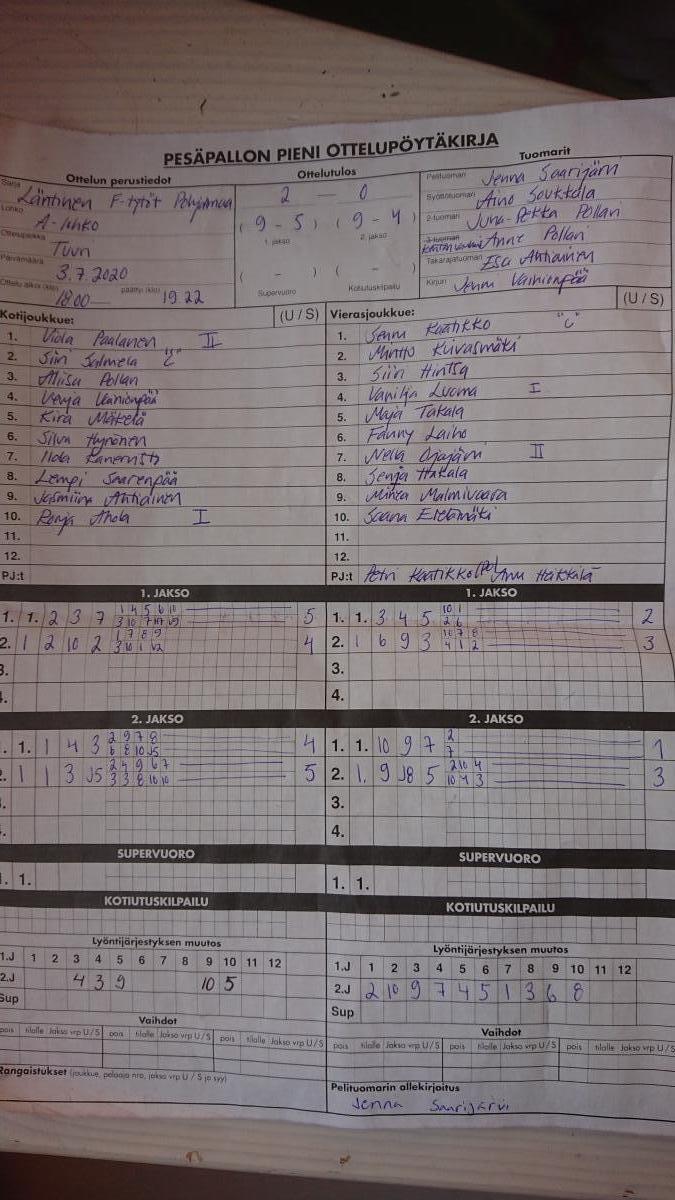 PESÄPALLON PIENI OTTELUPÖYTÄKIRJA
Ottelun perustiedot
Ottelutulos
Tuomarit
Sarja Läntinen F-tytöt Pohjanmaa
Lohko A-lohko
Ottelupaikka Tuuri
Päivämäärä 3.7.2020
Ottelu alkoi (klo) 18.00 päättyi (klo) 19.22
2 0
( 9 - 5 ) ( 9 - 4 )
1. jakso 2. jakso
( - ) ( - )
Supervuoro Kotiutuskilpailu
Pelituomari Jenna Saarijärvi
Syöttötuomari Aino Soukkala
2-tuomari Juha-Pekka Pollari
3-tuomari Anne Pollari
Takarajatuomari Esa Ahtiainen
Kirjuri Jenni Vainionpää
Kotijoukkue: (U / S)
1. Viola Paalanen II
2. Siiri Salmela "C"
3. Aliisa Pollari
4. Venja Vainionpää
5. Kira Mäkelä
6. Silva Hynönen
7. Iida
8. Lempi Saarenpää
9. Jasmiina Ahtiainen
10. Ronja Ahola I
11.
12.
PJ:t
Vierasjoukkue: (U / S)
1. Jenni Kaatikko "C"
2. Minttu Kiivasmäki
3. Siiri Hintsa
4. Vanilja Luoma I
5. Maja Takala
6. Fanny Laiho
7. Nella Ojajärvi II
8. Senja Hakala
9. Minea Malmivaara
10. Saana Etelämäki
11.
12.
PJ:t Petri Kaatikko (pj) Anu Heikkilä
1. JAKSO
1. 1. 2 3 7 1 4 5 6 10 5
2. 1 2 10 2 1 7 8 9 4
3.
4.
1. JAKSO
1. 1. 3 4 5 10 1 2 6 2
2. 1 6 9 3 10 7 8 4 1 2 3
3.
4.
2. JAKSO
1. 1. 1 4 3 2 9 7 8 6 8 10 J5 4
2. 1 1 3 J5 2 4 9 6 7 3 3 8 10 10 5
3.
4.
2. JAKSO
1. 1. 10 9 7 2 7 1
2. 1. 9 J8 5 2 10 4 10 4 3 3
3.
4.
SUPERVUORO
1. 1.
SUPERVUORO
1. 1.
KOTIUTUSKILPAILU
KOTIUTUSKILPAILU
Lyöntijärjestyksen muutos
1.J 1 2 3 4 5 6 7 8 9 10 11 12
2.J 4 3 9 10 5
Sup
Lyöntijärjestyksen muutos
1.J 1 2 3 4 5 6 7 8 9 10 11 12
2.J 2 10 9 7 4 5 1 3 6 8
Sup
Vaihdot
pois tilalle Jakso vrp U / S pois tilalle Jakso vrp U / S pois tilalle Jakso vrp U / S
Vaihdot
pois tilalle Jakso vrp U / S pois tilalle Jakso vrp U / S pois tilalle Jakso vrp U / S
Rangaistukset (joukkue, pelaaja nro, jakso vrp U / S ja syy)
Pelituomarin allekirjoitus
Jenna Saarijärvi